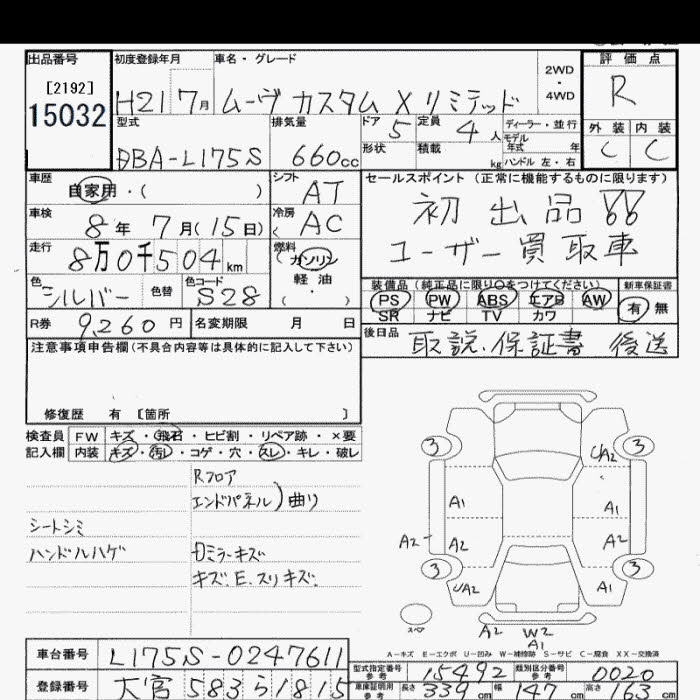 出品番号
[2192]
15032
初度登録年月
H21 7月
車名・グレード
ムーヴ カスタム X リミテッド
2WD
・
4WD
評価点
R
型式
DBA-L175S
排気量
660cc
ドア 5
定員 4人
形状
積載 kg
ディーラー・並行
モデル
年式 年
ハンドル 左・右
外装 内装
C C
車歴
自家用・( )
シフト
AT
車検
8年 7月(15日)
冷房
AC
走行
8万0千504km
燃料
ガソリン
軽油
( ・ )
色
シルバー
色替
色コード
S28
R券 9,260円
名変期限 月 日
セールスポイント (正常に機能するものに限ります)
初出品!!
ユーザー買取車
装備品 (純正品に限り○をつけてください)
PS PW ABS エアB AW
SR ナビ TV カワ
新車保証書
有 無
後日品 取説.保証書 後送
注意事項申告欄(不具合内容等は具体的に記入して下さい)
修復歴 有 [箇所 ]
検査員 FW キズ・飛石・ヒビ割・リペア跡・×要
記入欄 内装 キズ・汚レ・コゲ・穴・スレ・キレ・破レ
Rフロア
エンドパネル)曲り
シートシミ
ハンドルハゲ
ミラーキズ
キズ.E.スリキズ.
3 3
A2
A1 A1
A2 A2 A1
3 3
A2 A1
スペア
A2 W2
A1
A-キズ E-エクボ U-凹み W-補修跡 S-サビ C-腐食 XX-交換済
車台番号 L175S-0247611
登録番号 大宮 583 ら 1815
型式指定番号
参考
15492
類別区分番号
参考
0020
車庫証明用
参考
長さ 339cm 幅 147cm 高さ 63cm